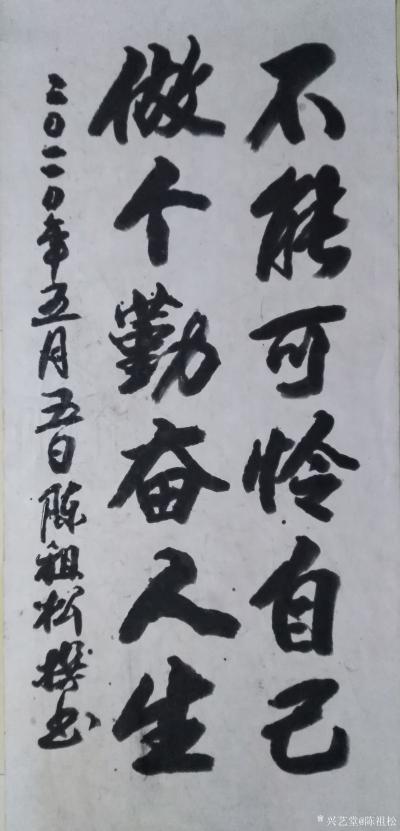 不能可怜自己
做个勤奋人生
二0二0年五月五日陈祖松撰书
兴艺堂@陈祖松